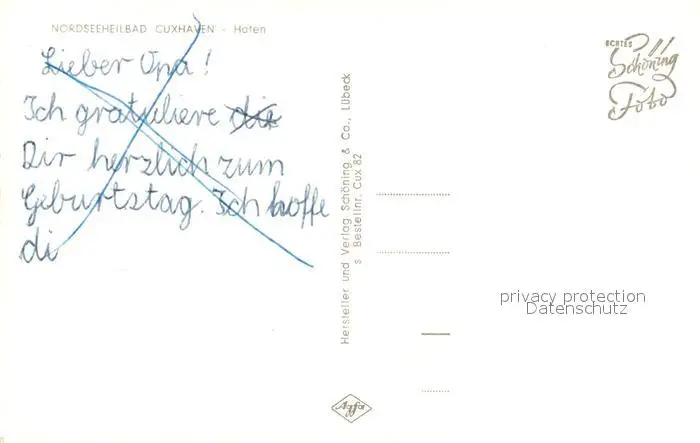 NORDSEEHEILBAD CUXHAVEN - Hafen
Lieber Opa!
Ich gratuliere die
Dir herzlich zum
Geburtstag. Ich hoffe
di
Hersteller und Verlag Schöning & Co., Lübeck
s Bestellnr. Cux 82
ECHTES
Schöning
Foto
privacy protection
Datenschutz
Agfa